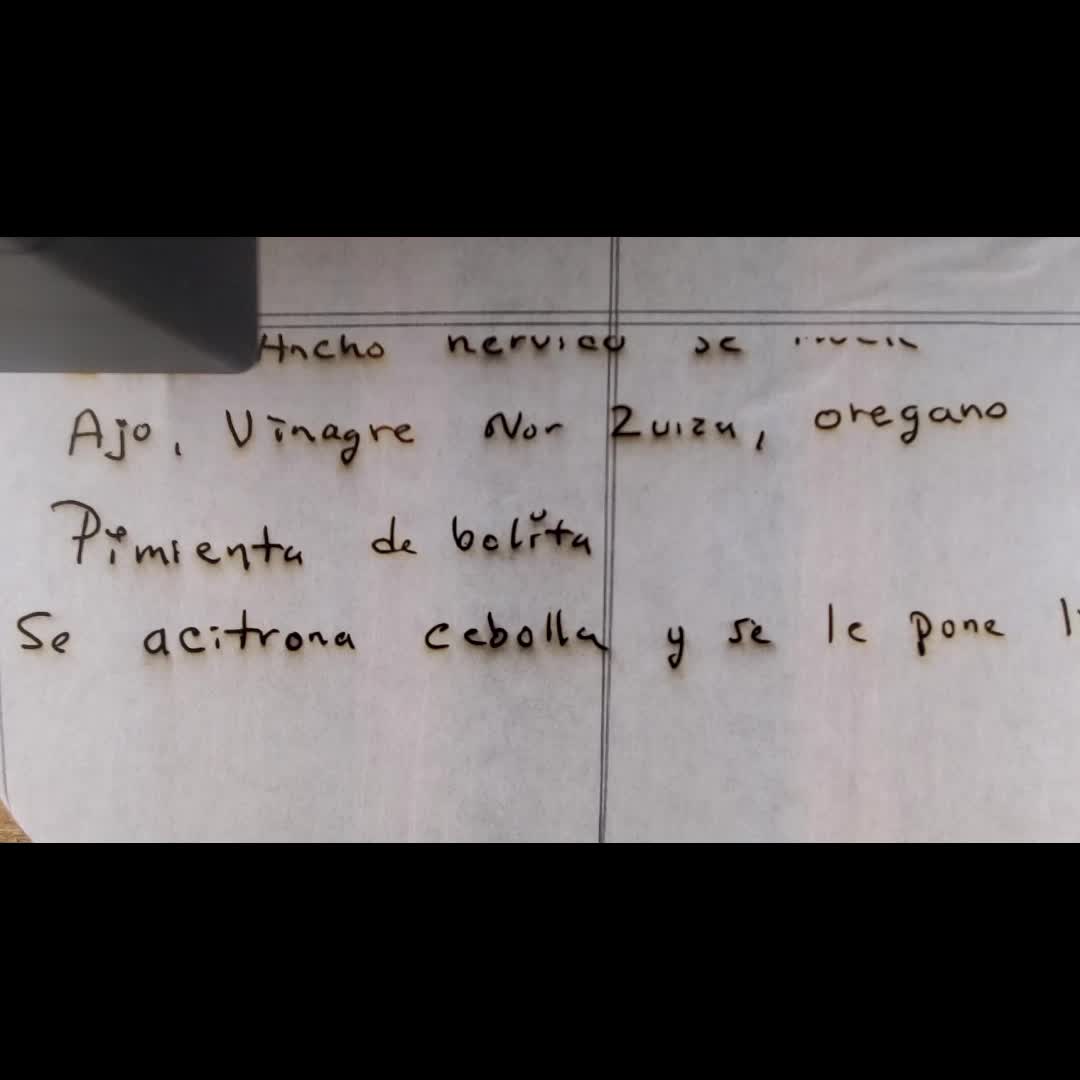 Ancho nervido se
Ajo, Vinagre Nor Zuizu, oregano
Pimienta de bolita
Se acitrona cebolla y se le pone